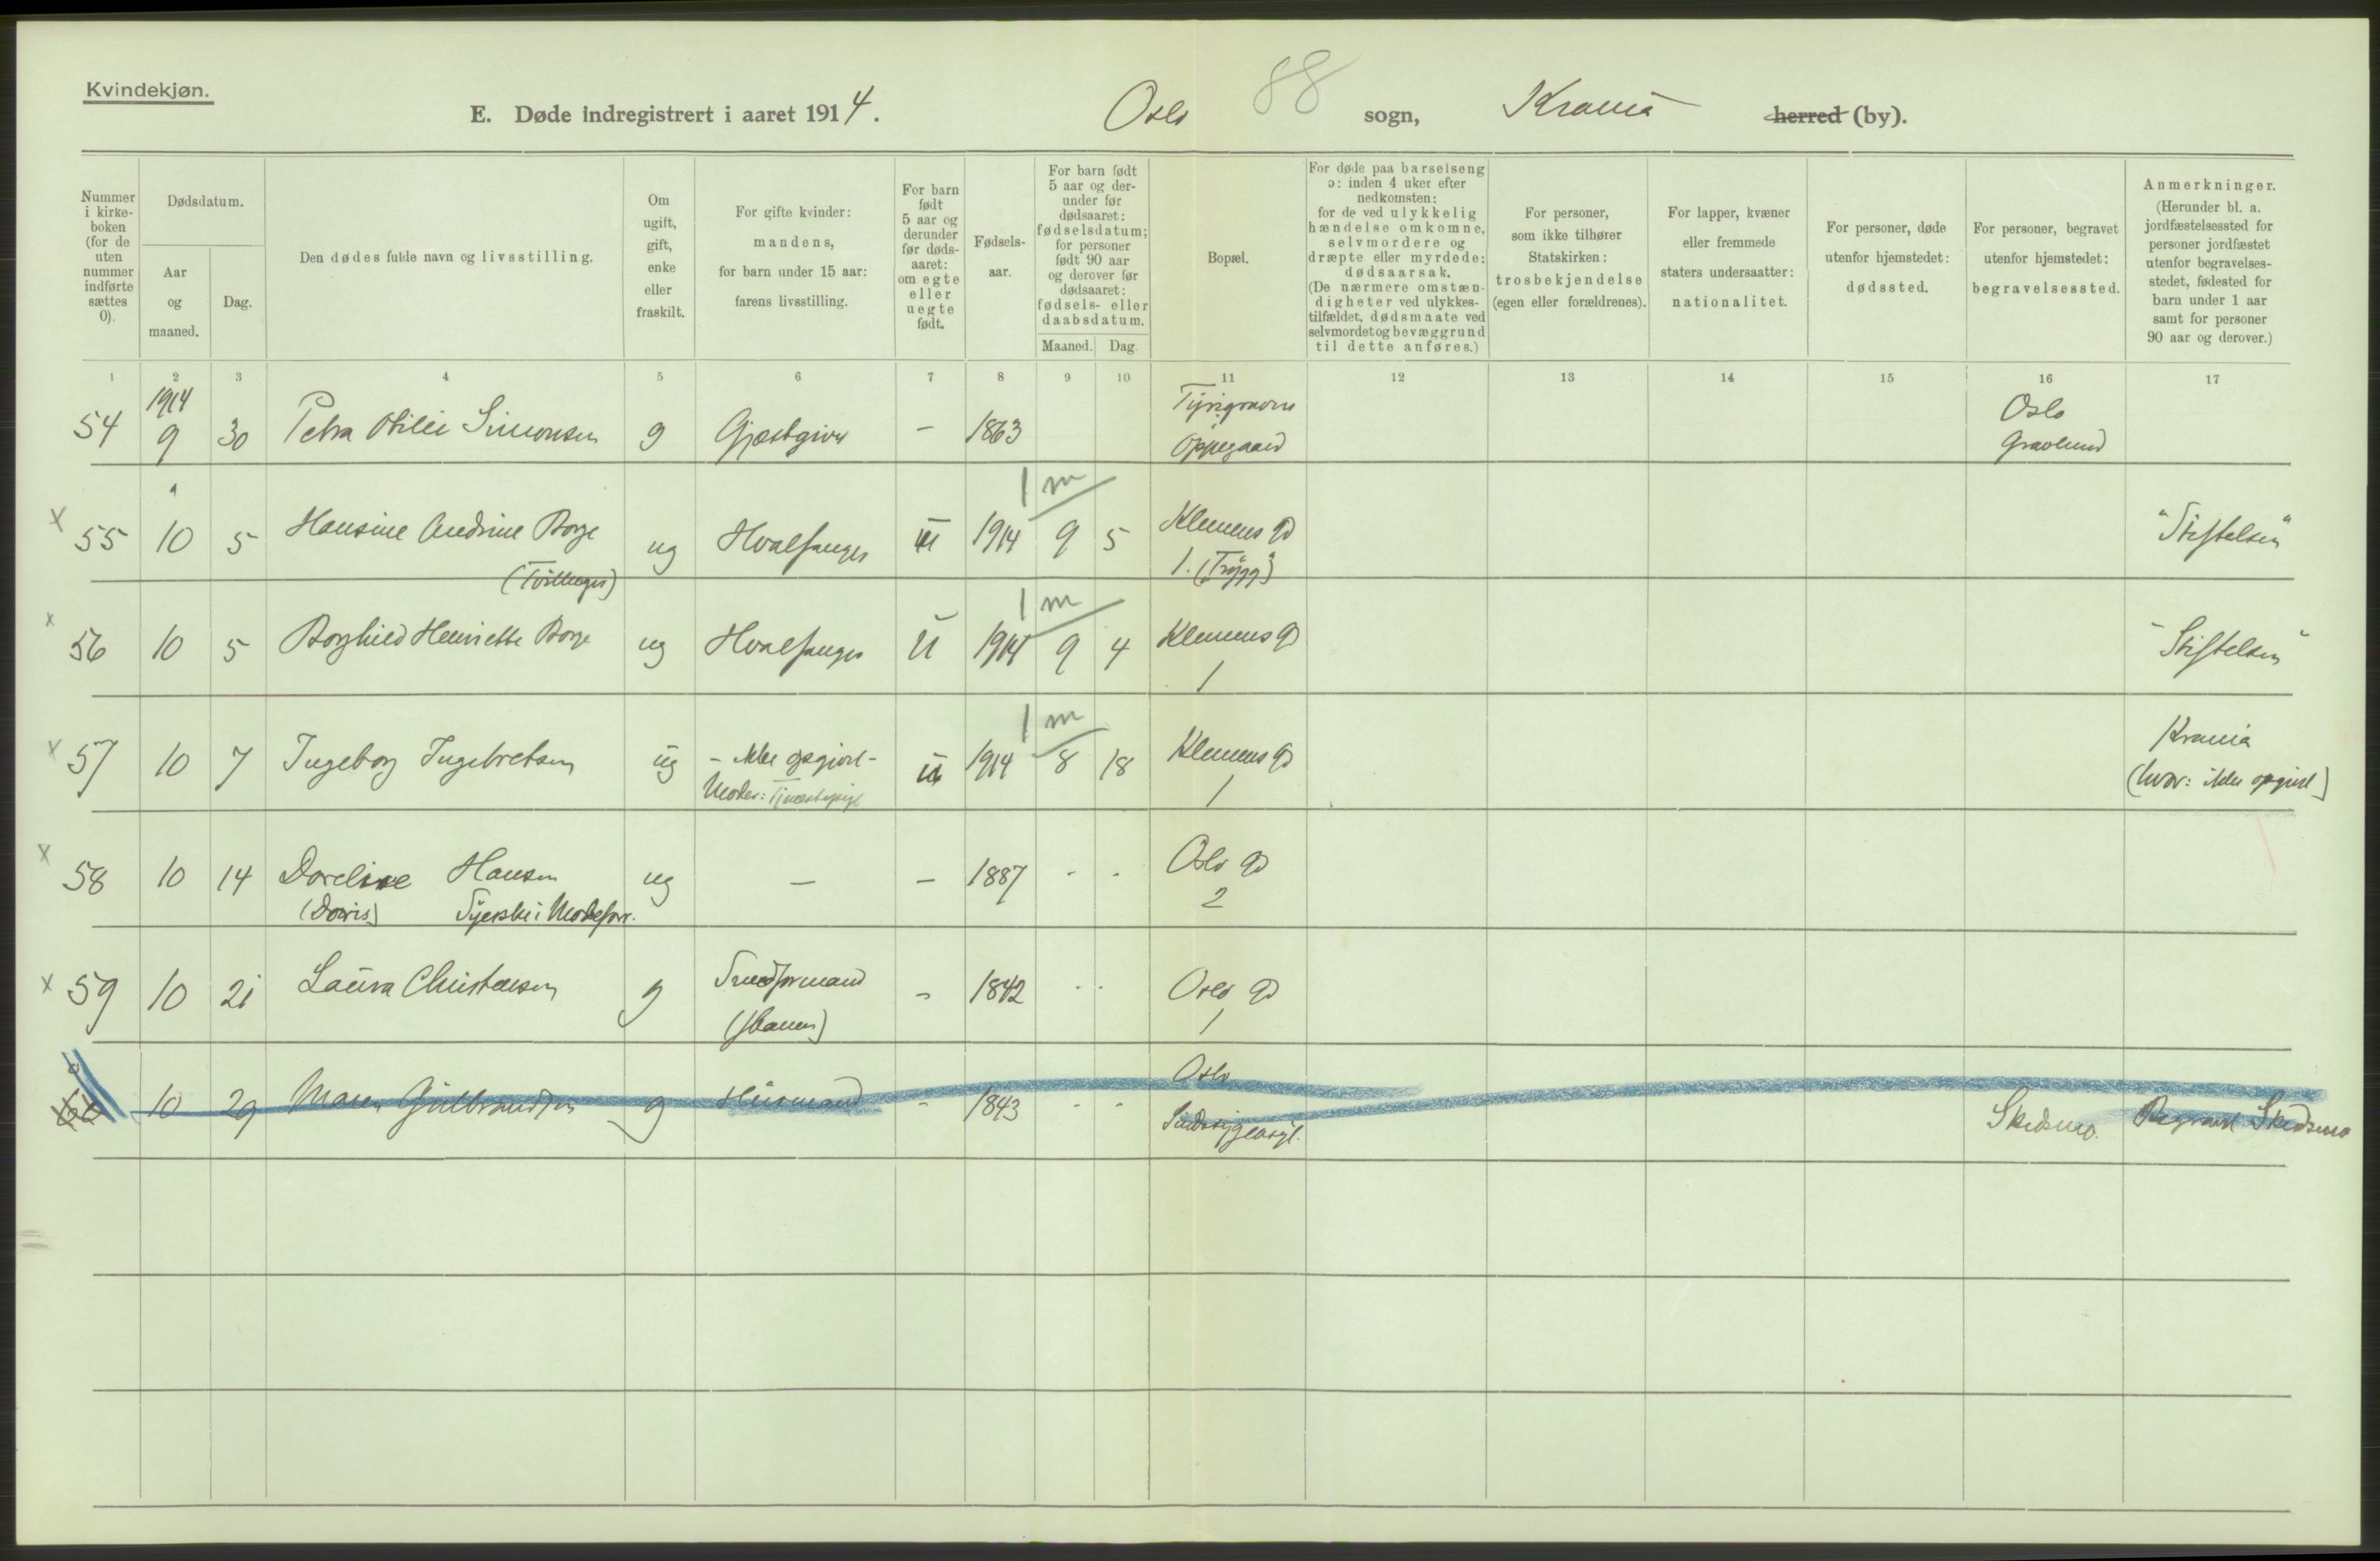 Kvindekjøn.
E. Døde indregistrert i aaret 1914. Oslo 88 sogn, Krania herred (by).
Nummer i kirke- boken (for de uten nummer indførte sættes 0).
Dødsdatum.
Aar og maaned.
Dag.
Den dødes fulde navn og livsstilling.
Om ugift, gift, enke eller fraskilt.
For gifte kvinder: mandens, for barn under 15 aar: farens livsstilling.
For barn født 5 aar og derunder før døds- aaret: om egte eller uegte født.
Fødsels- aar.
For barn født 5 aar og der- under før dødsaaret: fødselsdatum; for personer født 90 aar og derover før dødsaaret: fødsels- eller daabsdatum.
Maaned. Dag.
Bopæl.
For døde paa barselseng ɔ: inden 4 uker efter nedkomsten: for de ved ulykkelig hændelse omkomne, selvmordere og dræpte eller myrdede: dødsaarsak. (De nærmere omstæn- digheter ved ulykkes- tilfældet, dødsmaate ved selvmordet og bevæggrund til dette anføres.)
For personer, som ikke tilhører Statskirken: trosbekjendelse (egen eller forældrenes).
For lapper, kvæner eller fremmede staters undersaatter: nationalitet.
For personer, døde utenfor hjemstedet: dødssted.
For personer, begravet utenfor hjemstedet: begravelsessted.
Anmerkninger. (Herunder bl. a. jordfæstelsessted for personer jordfæstet utenfor begravelses- stedet, fødested for barn under 1 aar samt for personer 90 aar og derover.)
1 2 3 4 5 6 7 8 9 10 11 12 13 14 15 16 17
1914 Oslo
54 9 30 Petra Otilie Simonsen g Gjæstgiver – 1863 Oppegaard Gravlund
1 m
x 55 10 5 Hansine Andrine Borge ug Hvalfanger u 1914 9 5 Klemens Gd "Stiftelsen"
(Tvillinger) 1. ("Trygg")
1 m
x 56 10 5 Borghild Henriette Borge ug Hvalfanger u 1914 9 4 Klemens Gd "Stiftelsen"
1
1 m Krania
x 57 10 7 Ingeborg Ingebretsen ug – ikke opgivet – u 1914 8 18 Klemens Gd (hvor: ikke opgivet)
Moder: Tjenestepige 1
x 58 10 14 Doreline Hansen ug – – 1887 - - Oslo Gd
(Dorris) Syerske i Modeforr. 2
x 59 10 21 Laura Christensen g Sneformand – 1842 - - Oslo Gd
1
0 Oslo
60 10 29 Maren Gulbrandsen g Husmand – 1843 - - Sindssygeasyl. Skedsmo. Begravet Skedsmo